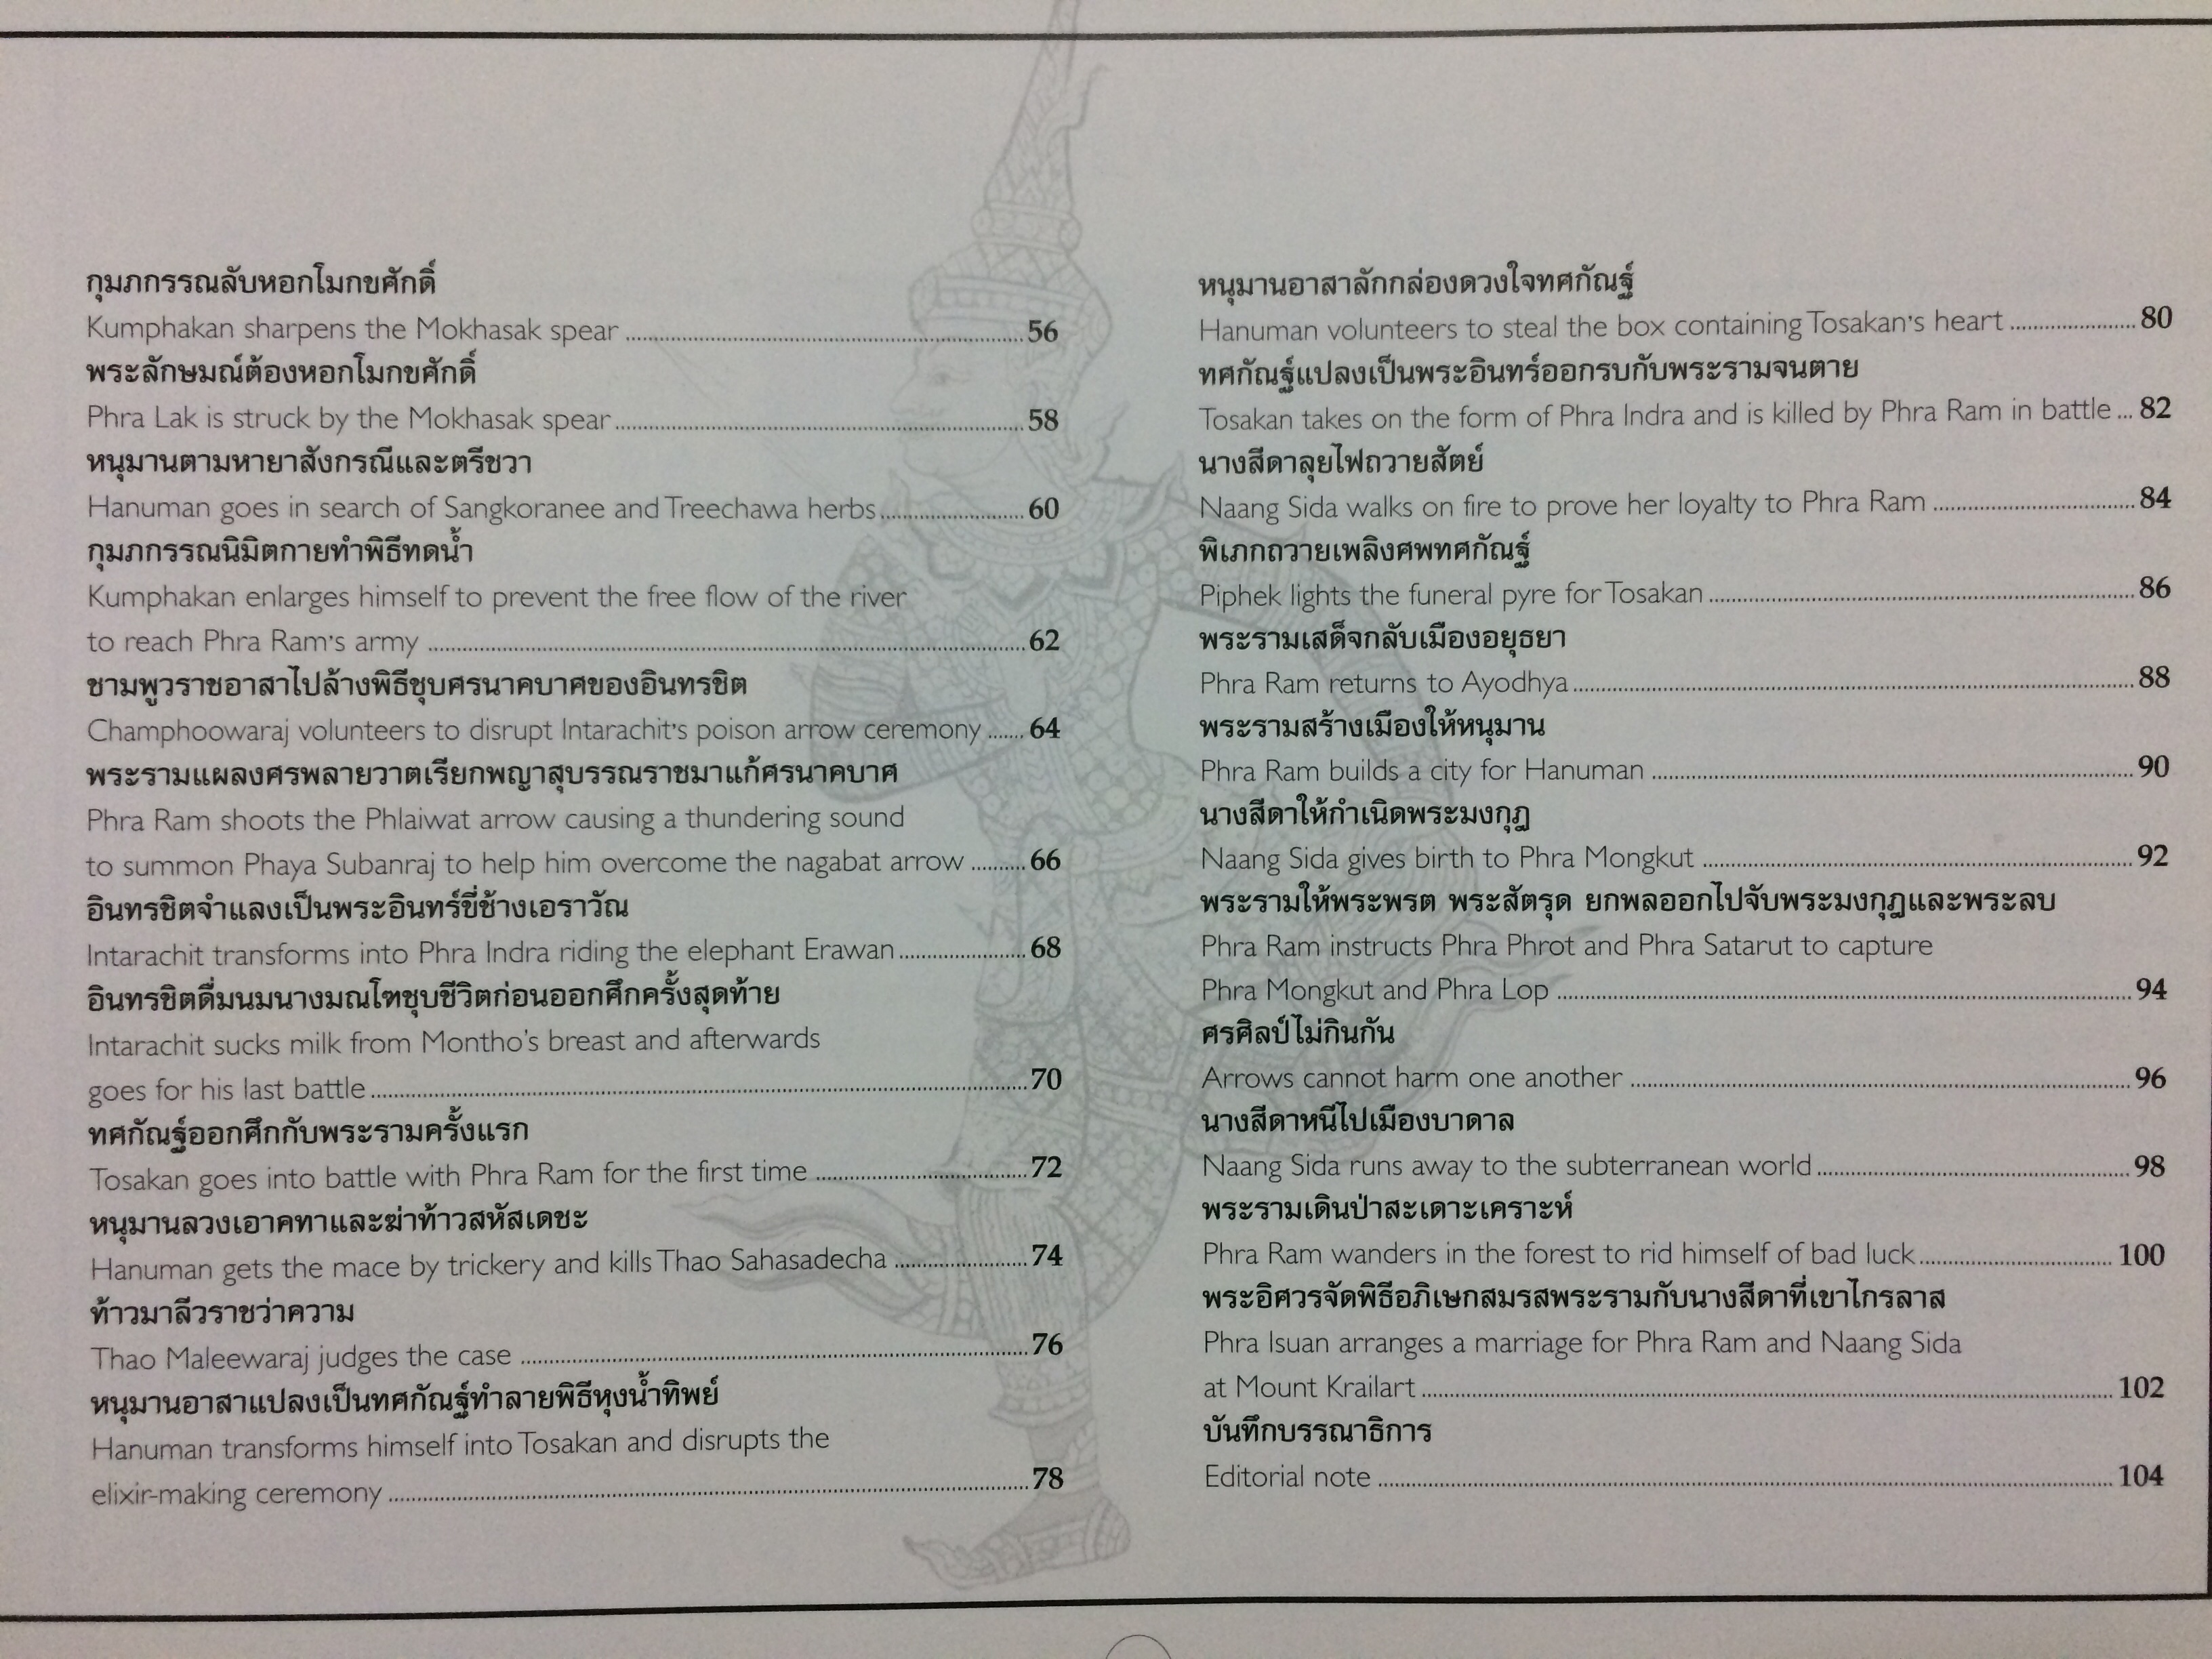 กุมภกรรณลับหอกโมกขศักดิ์
Kumphakan sharpens the Mokhasak spear ........ 56
พระลักษมณ์ต้องหอกโมกขศักดิ์
Phra Lak is struck by the Mokhasak spear ........ 58
หนุมานตามหายาสังกรณีและตรีชวา
Hanuman goes in search of Sangkoranee and Treechawa herbs ........ 60
กุมภกรรณนิมิตกายทำพิธีทดน้ำ
Kumphakan enlarges himself to prevent the free flow of the river
to reach Phra Ram's army ........ 62
ชามพูวราชอาสาไปล้างพิธีชุบศรนาคบาศของอินทรชิต
Champhoowaraj volunteers to disrupt Intarachit's poison arrow ceremony ....... 64
พระรามแผลงศรพลายวาตเรียกพญาสุบรรณราชมาแก้ศรนาคบาศ
Phra Ram shoots the Phlaiwat arrow causing a thundering sound
to summon Phaya Subanraj to help him overcome the nagabat arrow ........ 66
อินทรชิตจำแลงเป็นพระอินทร์ขี่ช้างเอราวัณ
Intarachit transforms into Phra Indra riding the elephant Erawan ........ 68
อินทรชิตดื่มนมนางมณโฑชุบชีวิตก่อนออกศึกครั้งสุดท้าย
Intarachit sucks milk from Montho's breast and afterwards
goes for his last battle ........ 70
ทศกัณฐ์ออกศึกกับพระรามครั้งแรก
Tosakan goes into battle with Phra Ram for the first time ........ 72
หนุมานลวงเอาคทาและฆ่าท้าวสหัสเดชะ
Hanuman gets the mace by trickery and kills Thao Sahasadecha ........ 74
ท้าวมาลีวราชว่าความ
Thao Maleewaraj judges the case ........ 76
หนุมานอาสาแปลงเป็นทศกัณฐ์ทำลายพิธีหุงน้ำทิพย์
Hanuman transforms himself into Tosakan and disrupts the
elixir-making ceremony ........ 78
หนุมานอาสาลักกล่องดวงใจทศกัณฐ์
Hanuman volunteers to steal the box containing Tosakan's heart ........ 80
ทศกัณฐ์แปลงเป็นพระอินทร์ออกรบกับพระรามจนตาย
Tosakan takes on the form of Phra Indra and is killed by Phra Ram in battle ... 82
นางสีดาลุยไฟถวายสัตย์
Naang Sida walks on fire to prove her loyalty to Phra Ram ........ 84
พิเภกถวายเพลิงศพทศกัณฐ์
Piphek lights the funeral pyre for Tosakan ........ 86
พระรามเสด็จกลับเมืองอยุธยา
Phra Ram returns to Ayodhya ........ 88
พระรามสร้างเมืองให้หนุมาน
Phra Ram builds a city for Hanuman ........ 90
นางสีดาให้กำเนิดพระมงกุฎ
Naang Sida gives birth to Phra Mongkut ........ 92
พระรามให้พระพรต พระสัตรุด ยกพลออกไปจับพระมงกุฎและพระลบ
Phra Ram instructs Phra Phrot and Phra Satarut to capture
Phra Mongkut and Phra Lop ........ 94
ศรศิลป์ไม่กินกัน
Arrows cannot harm one another ........ 96
นางสีดาหนีไปเมืองบาดาล
Naang Sida runs away to the subterranean world ........ 98
พระรามเดินป่าสะเดาะเคราะห์
Phra Ram wanders in the forest to rid himself of bad luck ........ 100
พระอิศวรจัดพิธีอภิเษกสมรสพระรามกับนางสีดาที่เขาไกรลาส
Phra Isuan arranges a marriage for Phra Ram and Naang Sida
at Mount Krailart ........ 102
บันทึกบรรณาธิการ
Editorial note ........ 104